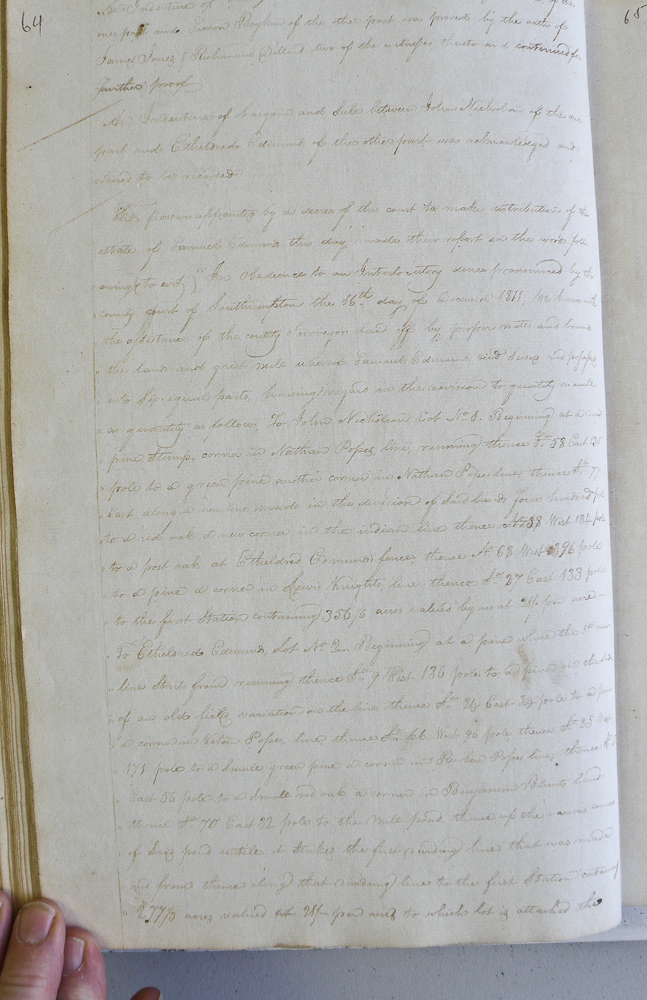 64
65
An Indenture of
one part and Simon Boykin of the other part was proved by the oath of
James Jones & two of the witnesses thereto and continued for
further proof
An Indenture of bargain and Sale between John Nicholson of the one
part and Etheldred Edmunds of the other part was acknowledged and
ordered to be recorded
The persons appointed by a decree of this court to make distribution of the
estate of Samuel Edmunds this day made their report in the words foll
owing (to wit) "In Obedience to an Interlocutory decree pronounced by the
county court of Southampton the 16th day of December 1811, We have with
the assistance of the county Surveyor laid off by proper metes and bounds
the land and grist mill whereof Samuel Edmunds died seised and possessed
into Six equal parts, having regard in the division to quality as well
as quantity as follows, To John Nicholson Lot No 1. Beginning at a
pine Stump, corner in Nathan Popes line, running thence So 58 East 135
pole to a green pine another corner in Nathan Popes line, thence So 77
East along a new line made in the division of said land four hundred pole
to a red oak a new corner in the indian line thence No 38 West 184 pole
to a post oak at Etheldred Edmunds fence, thence No 68 West 296 pole
to a pine a corner in Lewis Knights line, thence So 27 East 133 pole
to the first Station containing 356 acres valued by us at 21/ per acre
To Etheldred Edmunds, Lot No 2. Beginning at a pine where the
line Starts from running thence So 9 West 136 pole to a pine in the side
of an old field, variation on the line, thence So 24 East 34 pole to a pine
a corner in Popes line, thence West 96 pole thence So 35 West
171 pole to a small green pine a corner in Reuben Popes line, thence
East 56 pole to a small red oak a corner in Benjamin Blunts land
thence So 70 East 32 pole to the Mill pond, thence up the various courses
of Said pond untill it Strikes the first dividing line that was made
and from thence along that dividing line to the first Station containing
277 acres valued at 21/ per acre to which lot is attached the